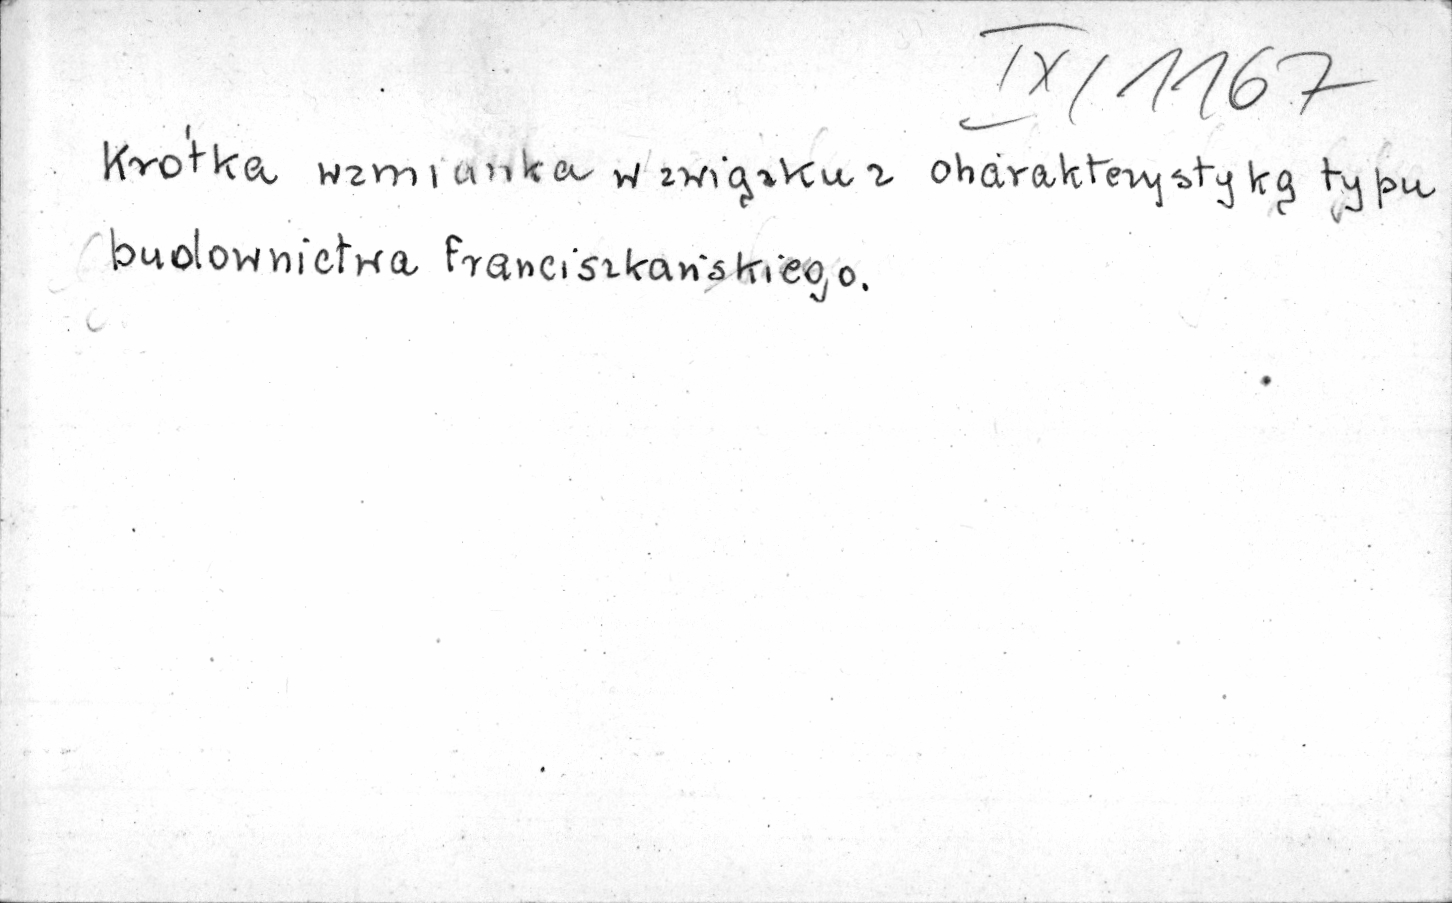 IX/1167
Krótka wzmianka w związku z charakterystyką typu
budownictwa franciszkańskiego.